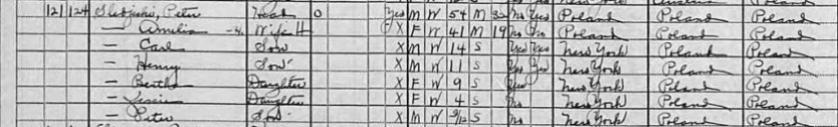 121 124 Peter Head O Yes M W 54 M 32 No Yes Poland Poland Poland
— Amelia Wife H X F W 41 M 19 No No Poland Poland Poland
— Carl Son X M W 14 S Yes Yes New York Poland Poland
— Henry Son X M W 11 S Yes Yes New York Poland Poland
— Bertha Daughter X F W 9 S Yes New York Poland Poland
— Daughter X F W 4 S No New York Poland Poland
— Peter Son X M W 9/12 S No New York Poland Poland